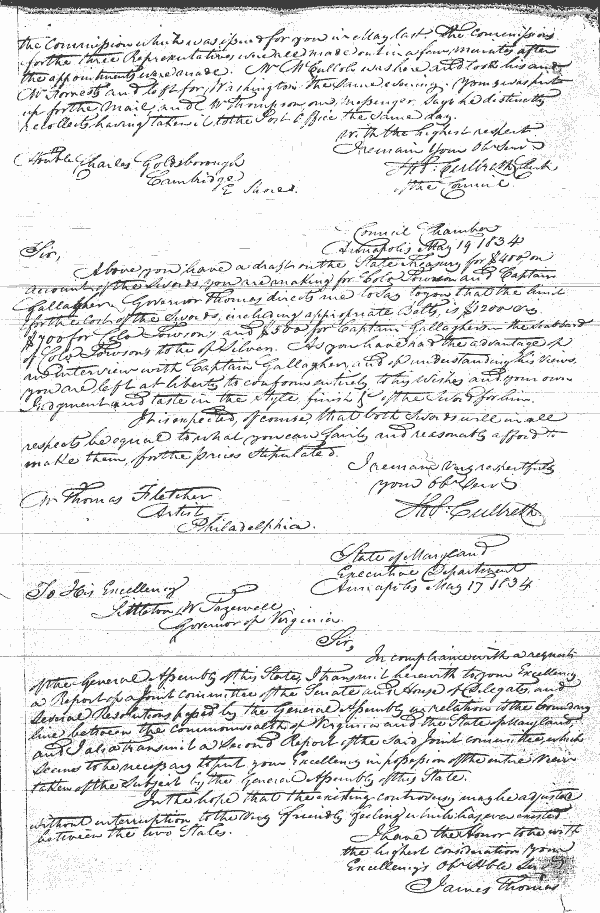 the Commission which was issued for you in May last. The Commissions
for the three Representatives were all made out in a few minutes after
the appointments were made. Mr. McCulloh was here and took his and
Mr. Forrests and left for Washington the same evening. Yours was put
up for the Mail, and Mr. Thompson, our messenger, says he distinctly
recollects having taken it to the Post Office the same day.
with the highest respect
I remain Your Obt. Servt.
Honble Charles Goldsborough
Ths. Culbreth Clerk
Cambridge
of the Council
E Shore
Council Chamber
Annapolis May 19 1834
Sir,
Above you have a draft on the State Treasury for $400 on
account of the Swords, you are making for Colo. Towson and Captain
Gallagher. Governor Thomas directs me to say to you that the limit
for the Cost of the Swords, including appropriate Belts, is $1200
$700 for Colo. Towson's and $500 for Captain Gallaghers - the Scabbard
of Colo. Towsons to be of Silver. As you have had the advantage of
an interview with Captain Gallagher, and of understanding his views,
you are left at liberty to conform entirely to his wishes and your own
Judgment and taste in the Style, finish &c of the Sword for him.
It is expected, of course, that both Swords will in all
respects be equal to what you can fairly and reasonably afford to
make them, for the prices stipulated.
I remain very respectfully
your Obt. Servt.
Mr. Thomas Fletcher
Ths. Culbreth
Artist
Philadelphia.
State of Maryland
Executive Department
To His Excellency
Annapolis May 17 1834
Littleton W Tazewell
Governor of Virginia
Sir,
In compliance with a request
of the General Assembly of this State, I transmit herewith to your Excellency
a Report of a Joint Committee of the Senate and House of Delegates, and
several Resolutions passed by the General Assembly in relation to the boundary
line between the Commonwealth of Virginia and the State of Maryland,
and I also transmit a Second Report of the Said Joint Committee, which
seems to be necessary to put your Excellency in possession of the entire view
taken of the Subject by the General Assembly of this State.
In the hope that the existing controversy may be adjusted
without interruption to the very friendly feeling which has ever existed
between the two States.
I have the Honor to be with
the highest consideration your
Excellency's Obt. Hble Servt.
James Thomas